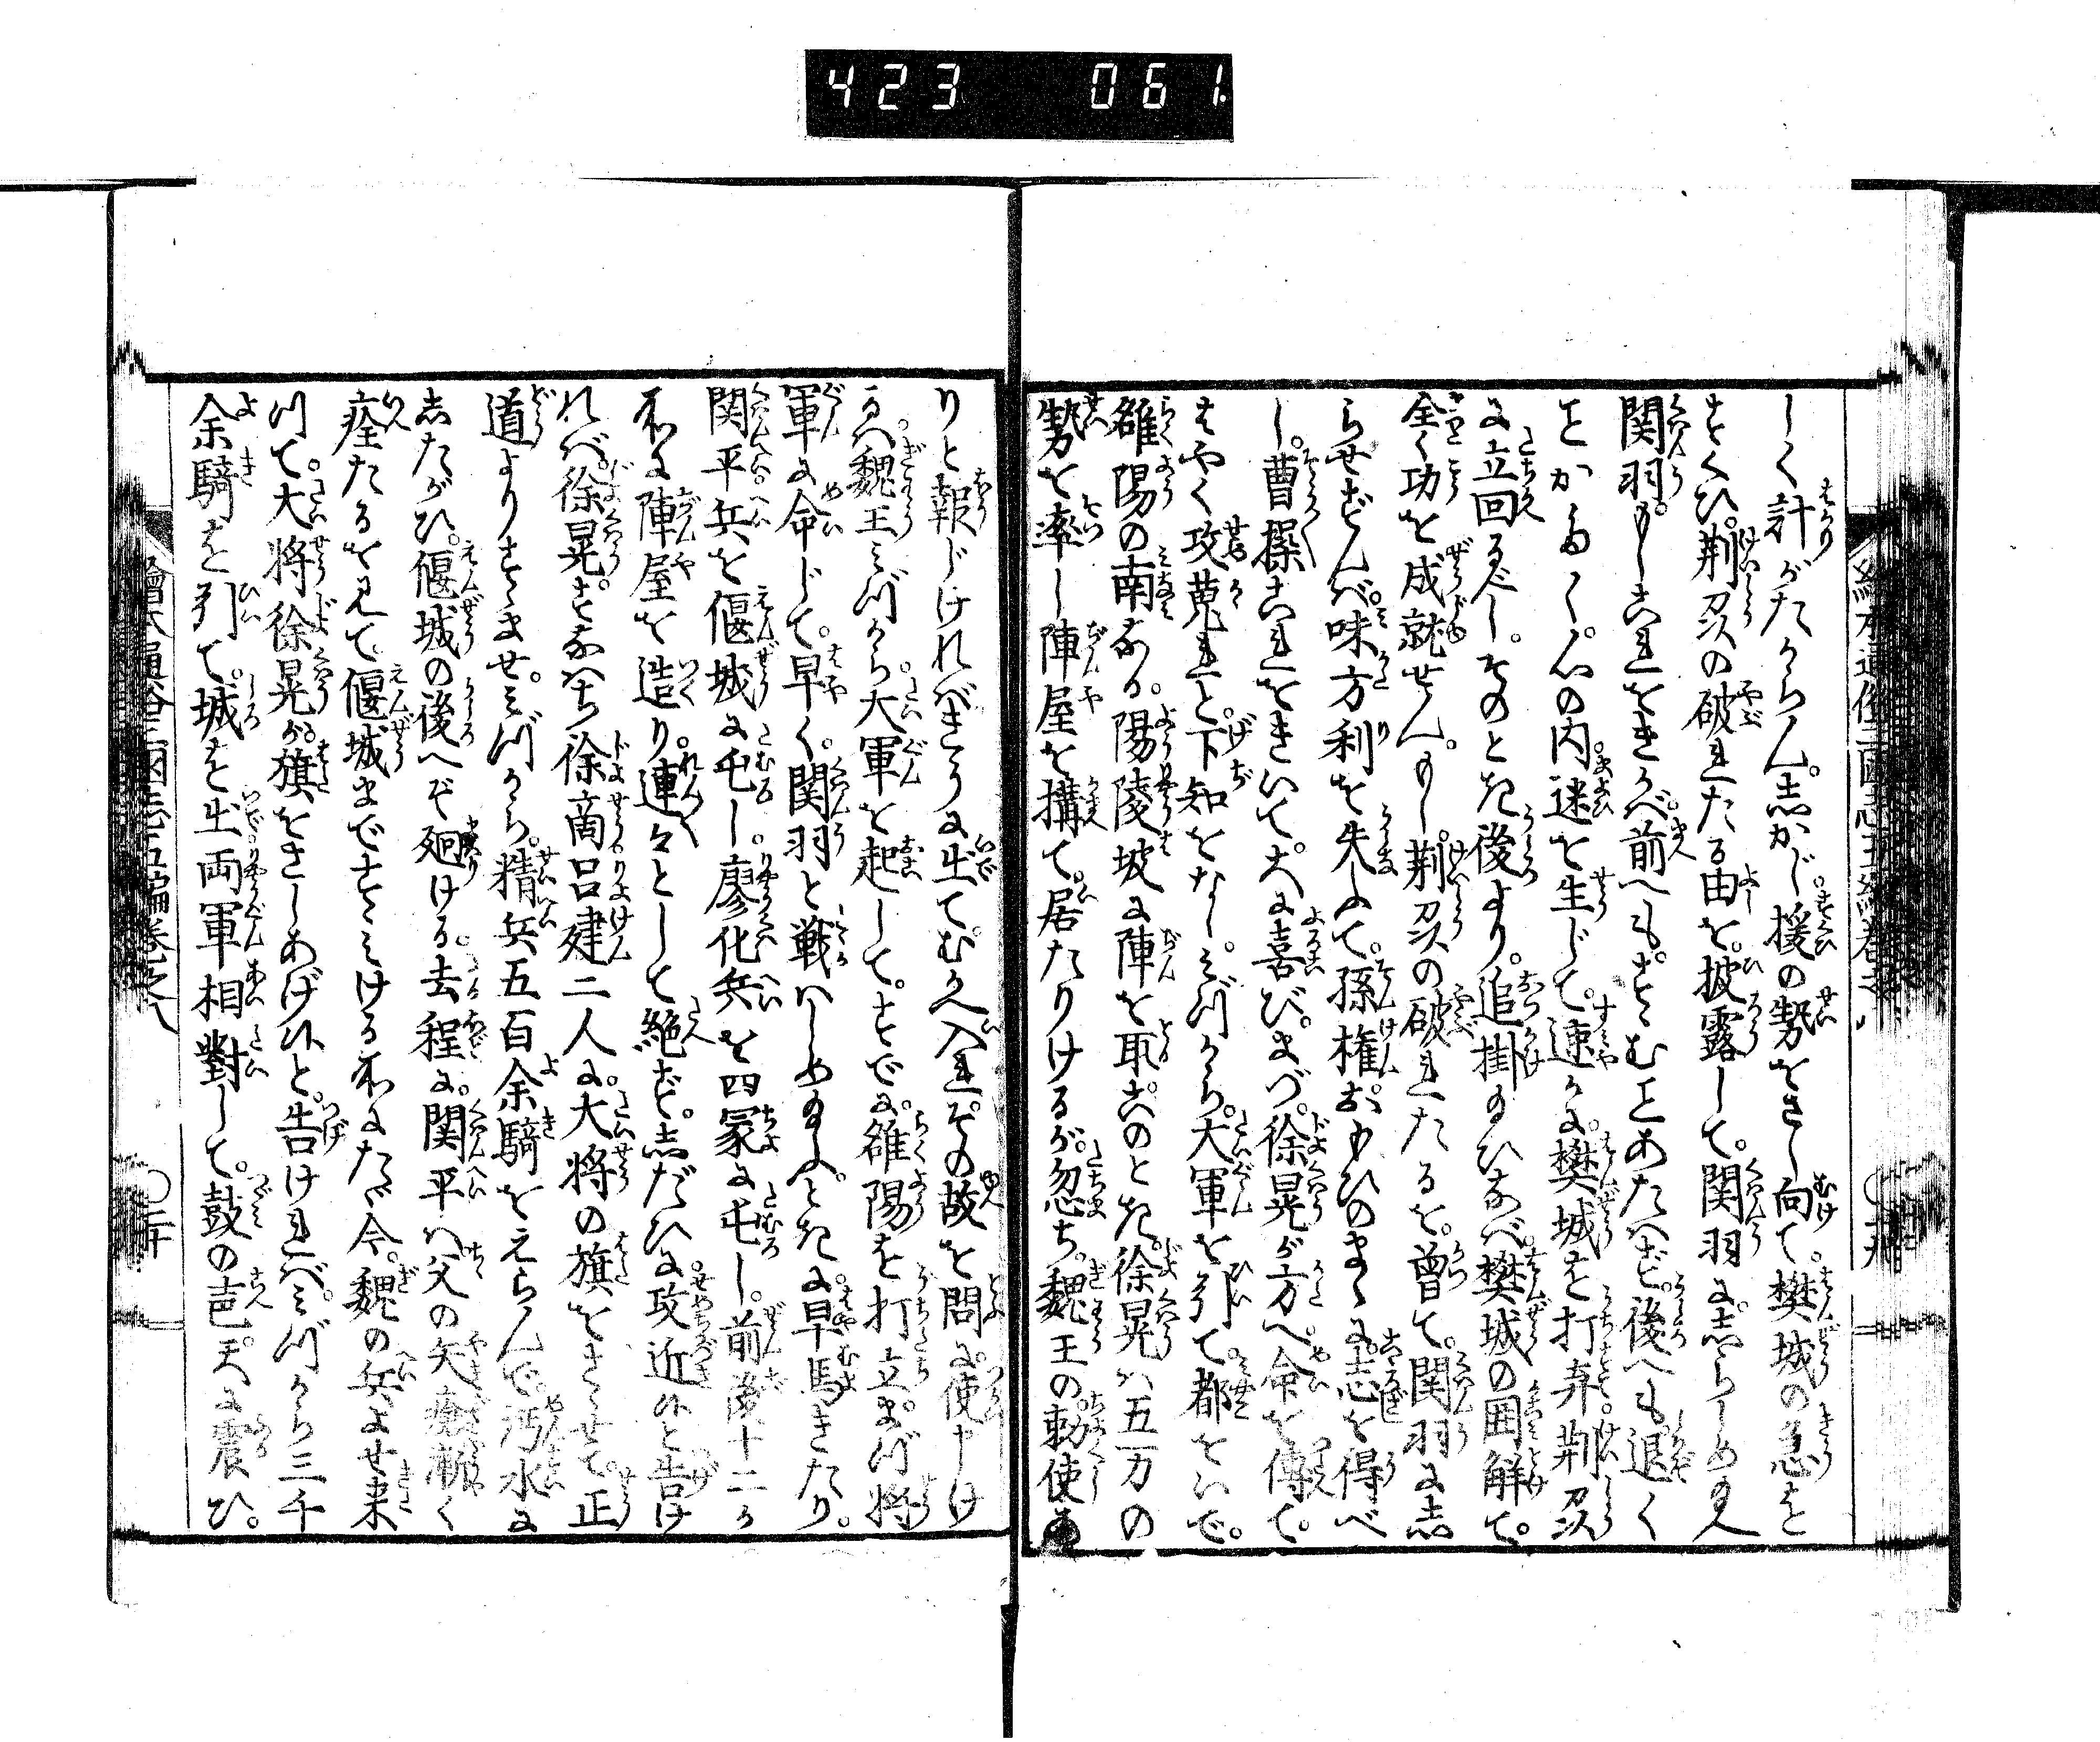 423 061.
しく計がたからん。志かじ。援の勢をさし向て。樊城の急を
すくひ。荊州の破れたる由を。披露して。関羽に。志らしめ給へ
関羽。もしこれをきかば。前へも。すゝむことあたはず。後へも退く
ことかたく。心の内。迷を生じて。速かに。樊城を打弃。荊州
に立回るべし。そのとき後より。追掛給ひなば。樊城の囲解て。
全く功を成就せん。もし。荊州の破れたるを。曽て。関羽に志
らせずんば。味方利を失ふて。孫権。おもひのまゝに。志を得べ
し。曹操これをきいて。大に喜び。まづ。徐晃が方へ。命を傳て。
はやく攻蒐れと。下知をなし。みづから。大軍を引て。都をいで。
雒陽の南なる。陽陵坡に陣を取。このとき。徐晃は五万の
勢を率し陣屋を搆て。居たりけるが。忽ち。魏王の。勅使来
りと報じければ。きうに出てむかへ入れ。その故を問に。使申け
るは。魏王みづから。大軍を起して。すでに。雒陽を打立。まづ将
軍に命じて。早く。関羽と戦はしめ給ふ。ときに。早馬きたり。
関平兵を偃城に屯し。廖化兵を四冢に屯し。前後十二ヶ
所に陣屋を造り。連々として絶ず。志だひに。攻近候と告け
れば。徐晃。すなはち徐商呂建二人に。大将の旗をさゝせて。正
道よりすゝませ。みづから。精兵五百余騎をえらんで。沔水に
志たがひ。偃城の後へぞ廻ける。去程に。関平は父の矢瘡漸く
痊たるを見て偃城まですゝみける所に。たゞ今。魏の兵よせ来
て。大将徐晃が。旗をさしあげ候と。告ければ。みづから三千
余騎を引て。城を出両軍相對して。鼓の声。天に震ひ。